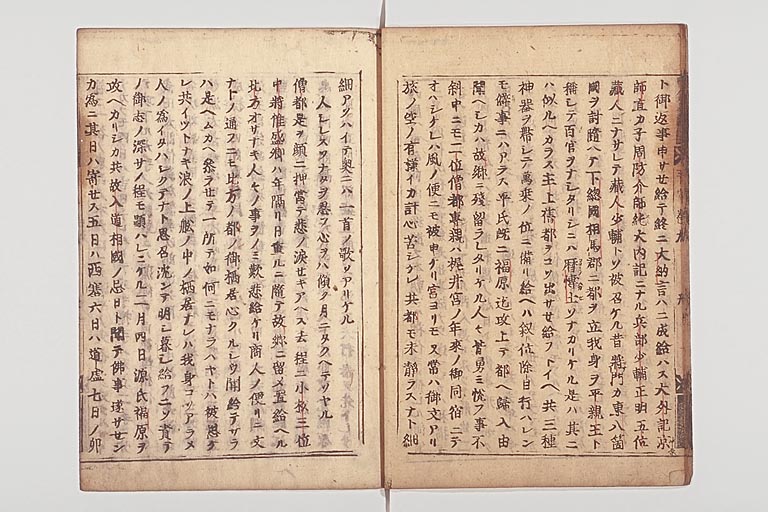 ト御返事申サセ給テ終ニ大納言ハニ成給ハス大外記
師直カ子周防介師純大内記ニナル兵部少輔正明五位
蔵人ニナサレテ蔵人少輔トソ被召ケル昔将門カ東八箇
國ヲ討随ヘテ下総國相馬郡ニ都ヲ立我身ヲ平親王ト
稱シテ百官ヲナシタリシニハ暦博士ソナカリケル是ハ其ニ
ハ似ルヘカラス主上舊都ヲコソ出サセ給フトイヘ共三種
神器ヲ帯シテ萬乗ノ位ニ備リ給ヘハ叙位除目行ハレン
モ僻事ニハアラス平氏既ニ福原迄攻上テ都ヘ歸入由
聞ヘシカハ故郷ニ残留ラレタリケル人々皆勇ミ悦フ事不
斜中ニモ二位僧都専親ハ梶井宮ノ年来ノ御同宿ニテ
オハシケレハ風ノ便ニモ被申ケリ宮ヨリモ又常ハ御文アリ
旅ノ空ノ有様イカ計心苦シケレ共都モ未静ラスナト細
細アソハイテ奥ニハ一首ノ歌ソアリケル
人シレスソナタヲ忍フ心ヲハ傾ク月ニタクヘテソヤル
僧都是ヲ顔ニ押當テ悲ノ涙セキアヘス去程ニ小松三位
中将惟盛卿ハ年隔リ日重ルニ隨テ故郷ニ留メ置給ヘル
北方オサナキ人々ノ事ヲノミ歎悲給ケリ商人ノ便リニ文
ナトノ通フニモ北方ノ都ノ御栖居心クルシウ聞給テサラ
ハ是ヘムカヘ参ラセテ一所テ如何ニモナラハヤトハ被思ケ
レ共イツトナキ浪ノ上舩ノ中ノ栖居ナレハ我身コソアラメ
人ノ為イタハシクテナト思召沈ンテ明シ暮シ給フニソ責テ
ノ御志ノ深サノ程モ顕ハレニケル二月四日源氏福原ヲ
攻ヘカリシカ共故入道相國ノ忌日ト聞テ佛事遂サセン
カ為ニ其日ハ寄セス五日ハ西塞六日ハ道虚七日ノ卯